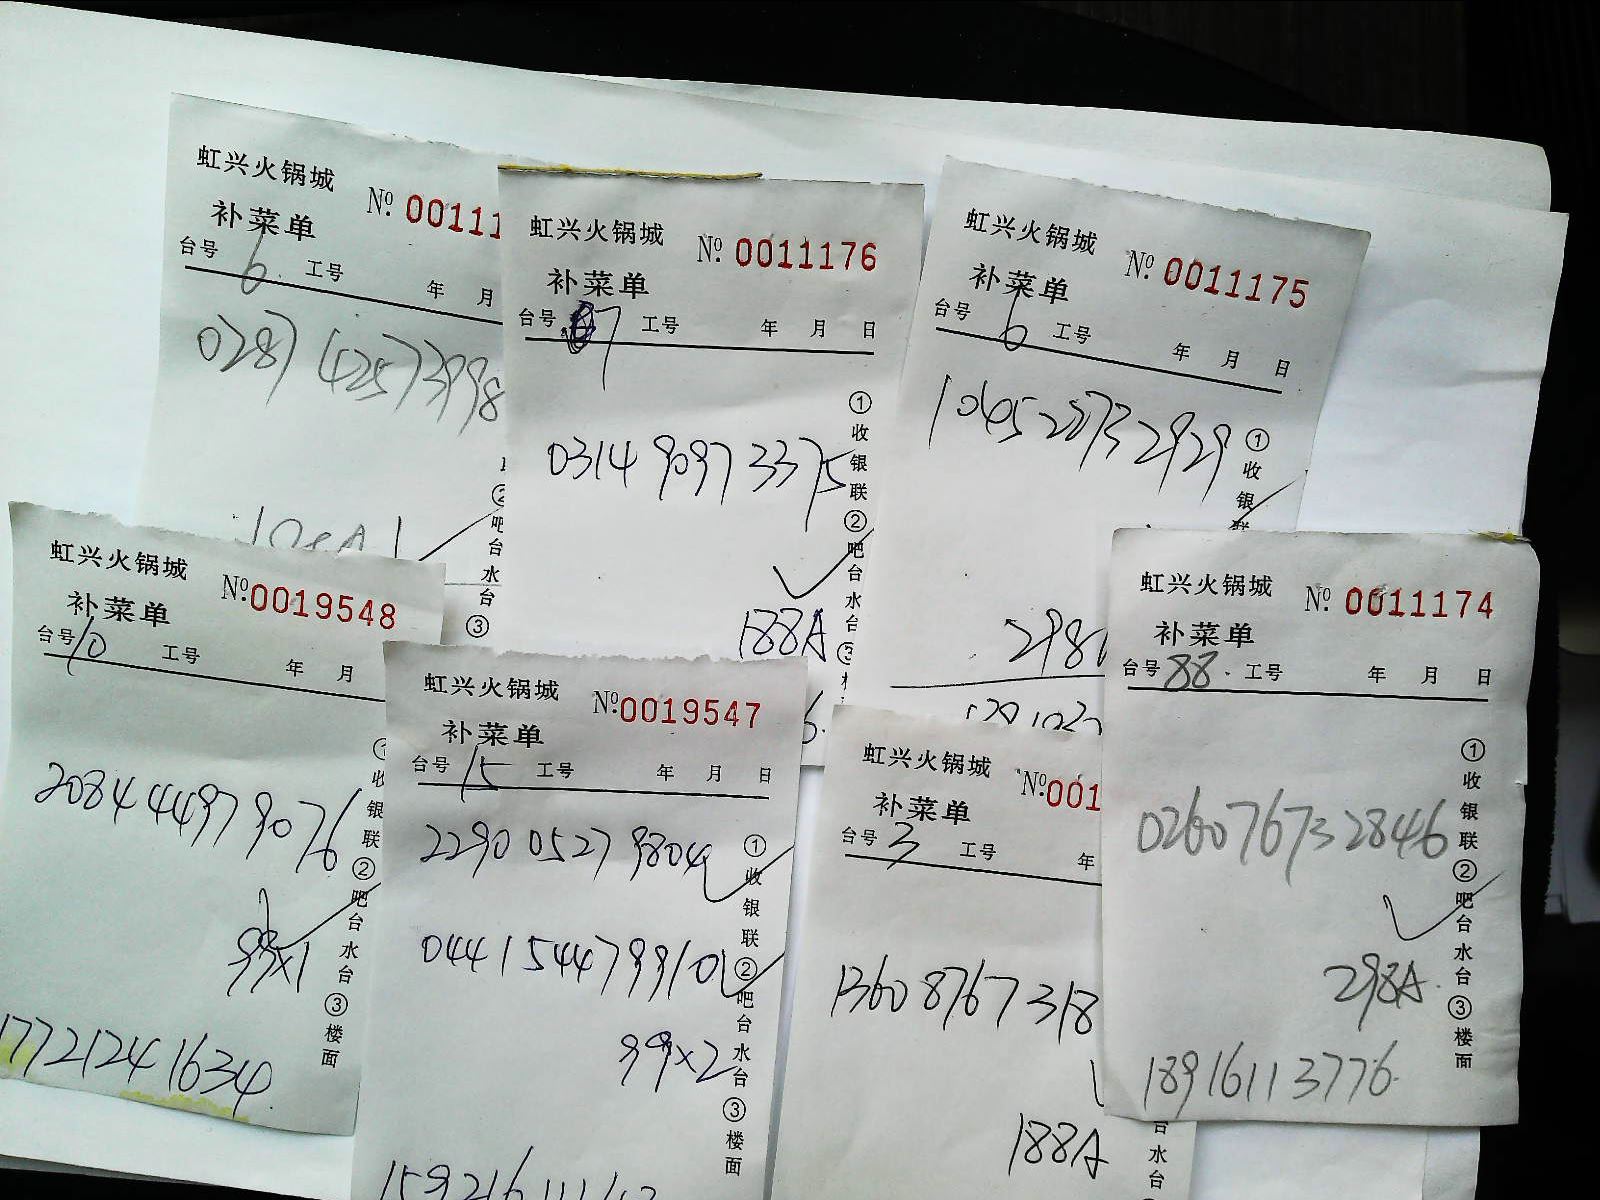 虹兴火锅城
№ 00111
补菜单
台号 6 工号 年 月
0287 42573998
②吧台水台③
虹兴火锅城
№ 0011176
补菜单
台号 7 工号 年 月 日
0314 9097 3375
188A
①收银联②吧台水台③
虹兴火锅城
№ 0011175
补菜单
台号 6 工号 年 月 日
298
①收银联
虹兴火锅城
№ 0019548
补菜单
台号 10 工号 年 月
2084 4497 9076
99x1
17721241634
①收银联②吧台水台③楼面
虹兴火锅城
№ 0019547
补菜单
台号 15 工号 年 月 日
2290 0527 9804
0441 5447 9910
99x2
①收银联②吧台水台③楼面
虹兴火锅城
№ 001
补菜单
台号 3 工号 年
13608767318
188A
台水台
虹兴火锅城
№ 0011174
补菜单
台号 88 工号 年 月 日
026076732846
298A
18916113776
①收银联②吧台水台③楼面